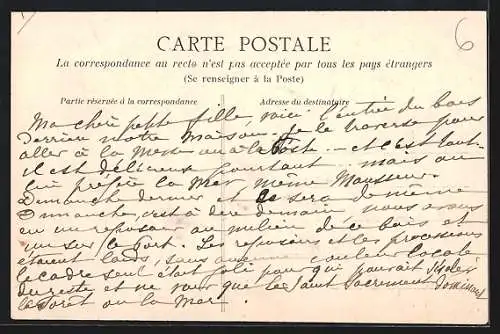 6
CARTE POSTALE
La correspondance au recto n'est pas acceptée par tous les pays étrangers
(Se renseigner à la Poste)
Partie réservée à la correspondance
Adresse du destinataire
Ma chère petite fille, voici l'entrée du bois
derrière notre maison. Je le traverse pour
aller à la messe ou à la Poste — et c'est tout.
il est délicieux pourtant mais on
lui préfère la mer, même Monsieur.
Dimanche dernier et ce sera de même
Dimanche, c'est à dire demain nous avons
eu un reposoir au milieu de ce bois et
un sur le port. Les reposoirs et les processions
étaient laids, sans aucune couleur locale
le cadre seul était joli pour qui pouvait s'isoler
du reste et ne voir que le Saint Sacrement dominant
la forêt ou la mer.